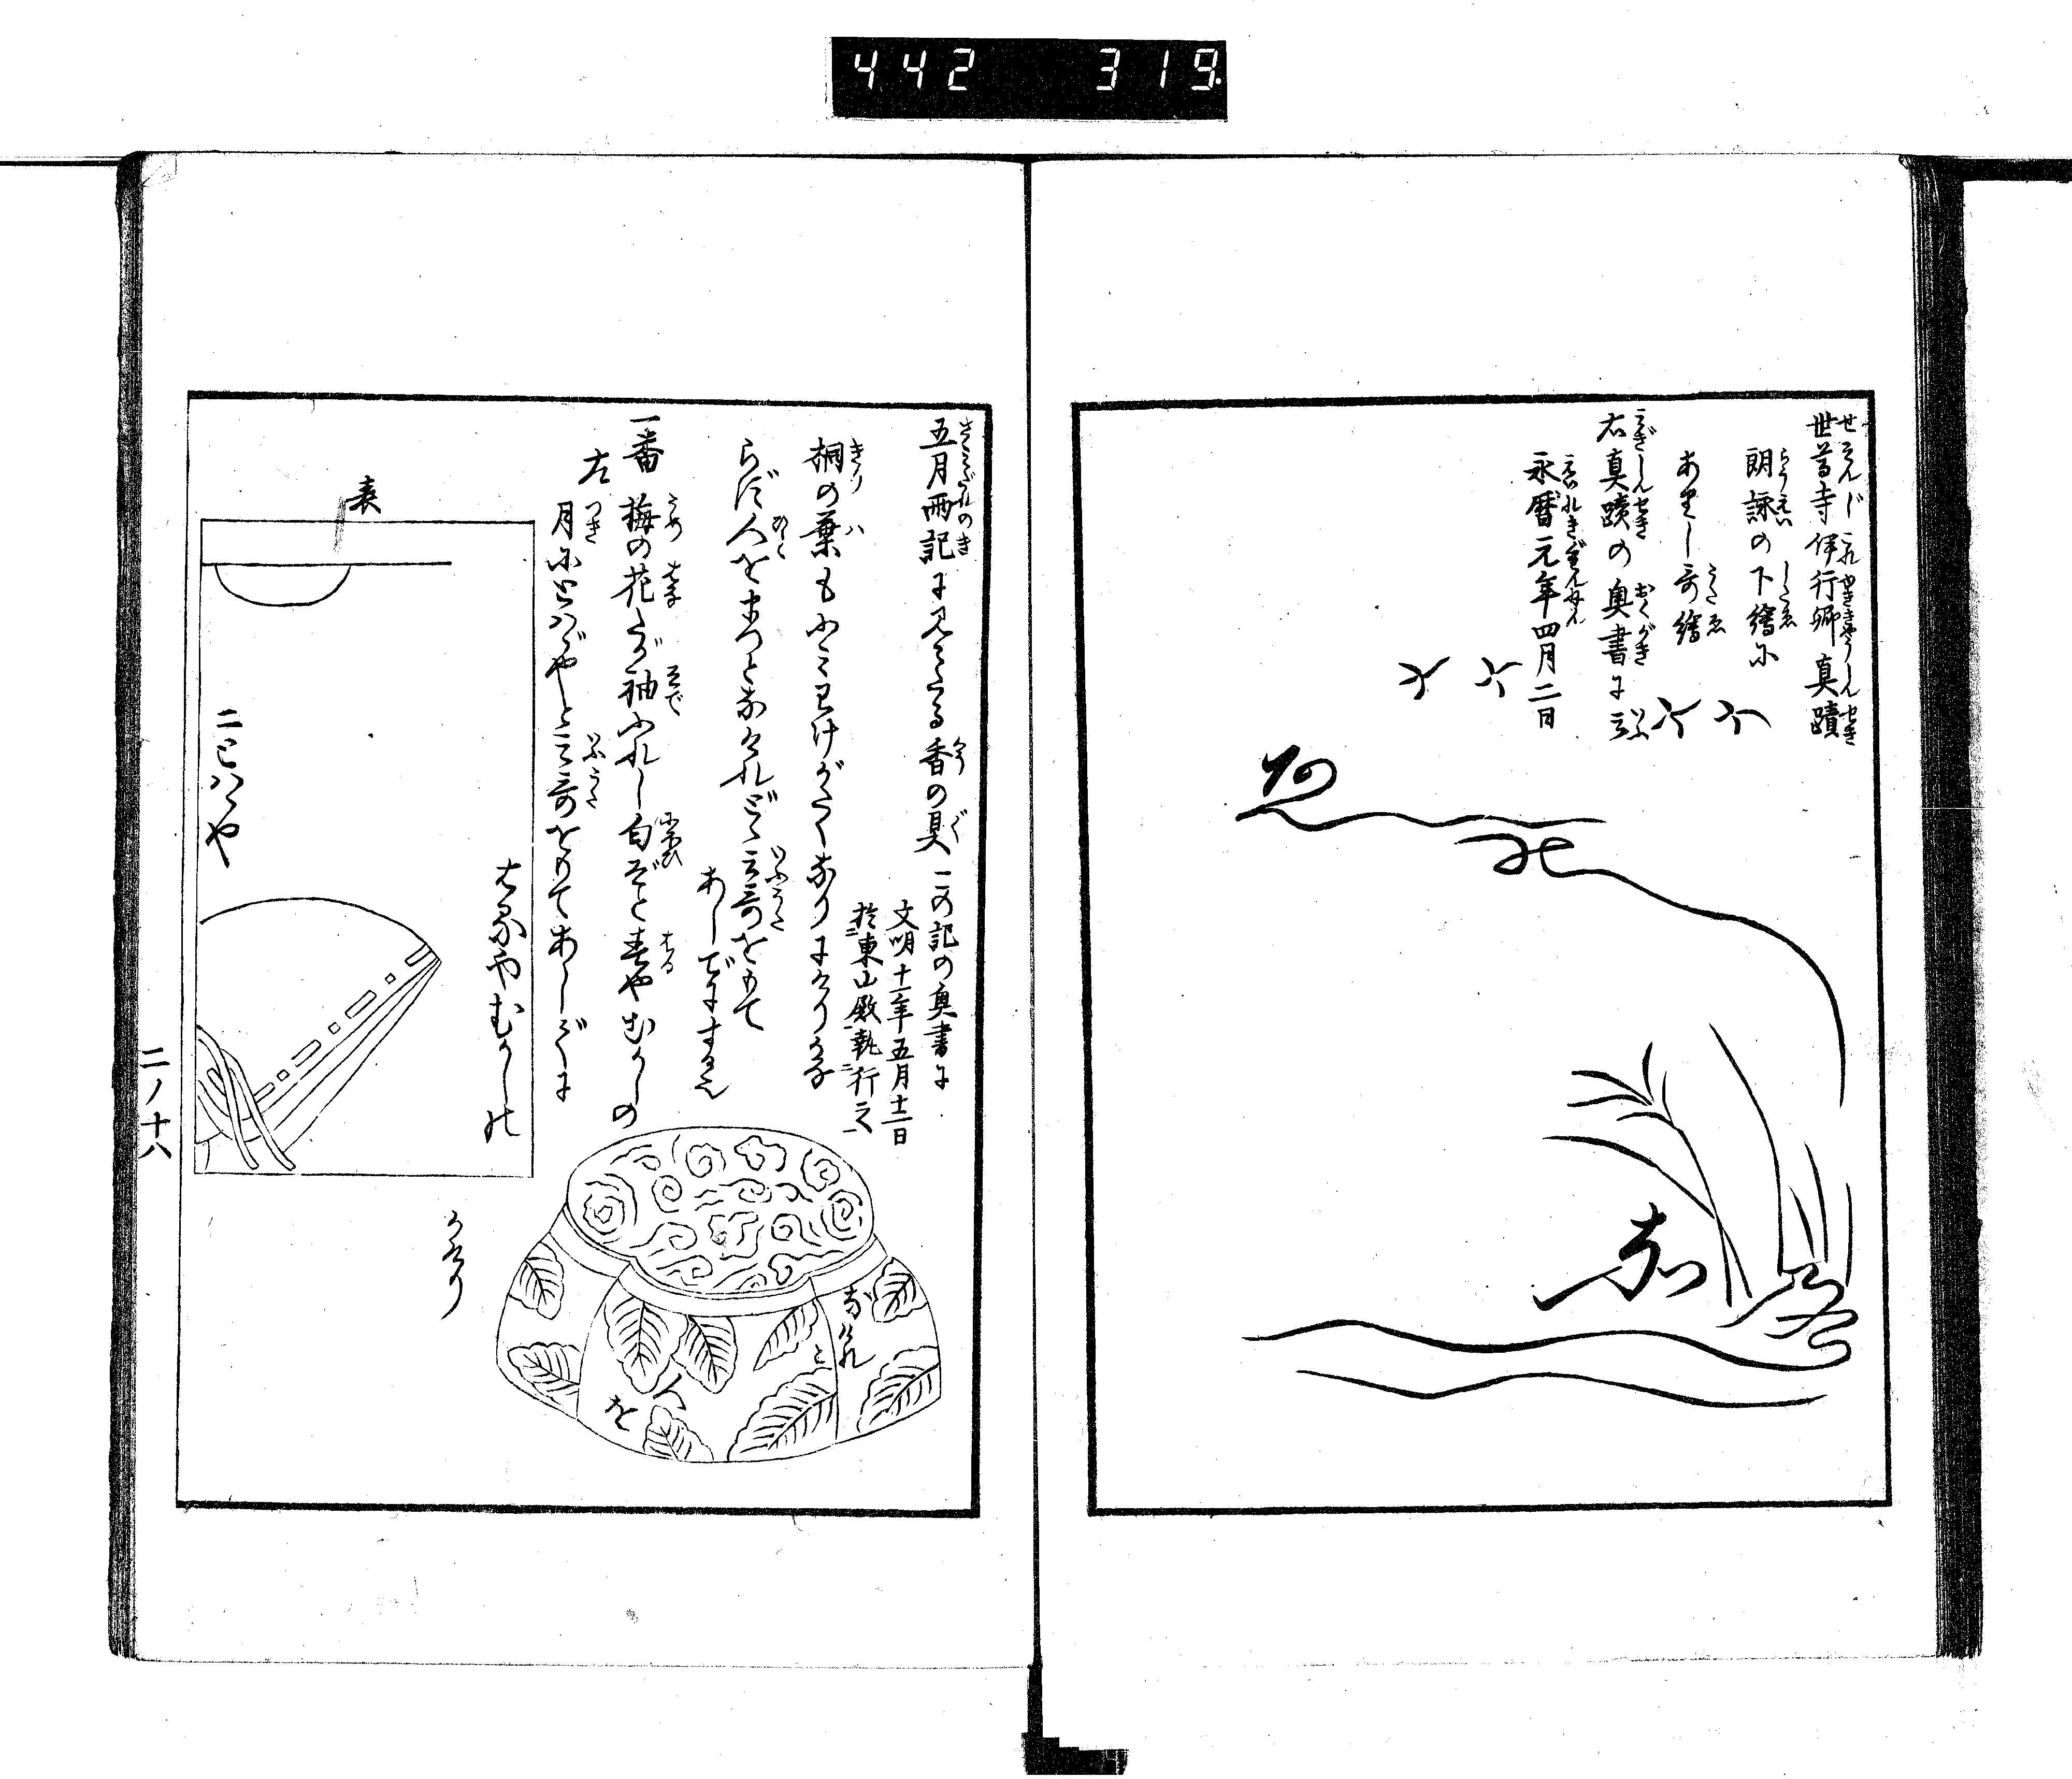 442 319
世尊寺伊行卿真蹟
朗詠の下繪に
ありし哥繪
右真蹟の奥書に云
永暦元年四月二日
五月雨記に見えたる香の具
この記の奥書に
文明十一年五月十二日
於東山殿執行之
桐の葉もふみわけがたくなりにけりかな
らず人をまつとなけれど云哥をもて
あしでにすゑ
一番 梅の花たが袖ふれし匂ぞと春やむかしの
左 月にとはゞやと云哥をもてあしでに
表
はるやむかしの
二とはゝや
かをり
なけれ
と
人
を
二ノ十八